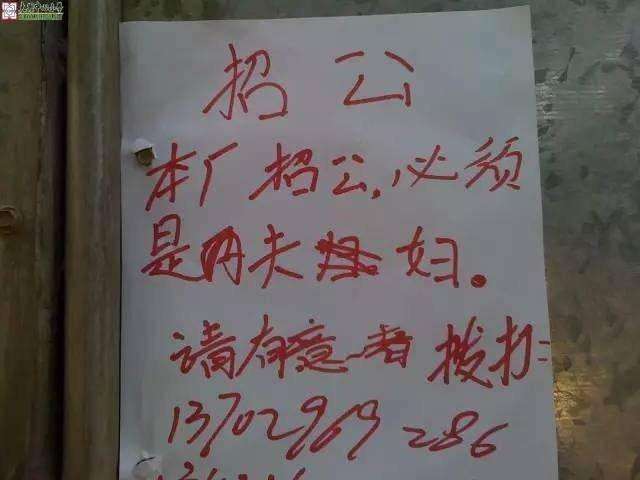 招公
本厂招公,必须
是内夫妇。
请有意者拨打:
13702969286